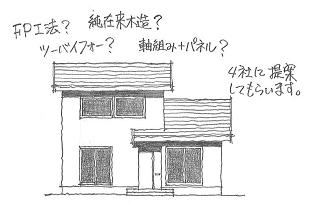 FP工法？ 純在来木造？
ツーバイフォー？ 軸組み+パネル？
4社に提案
してもらいます。